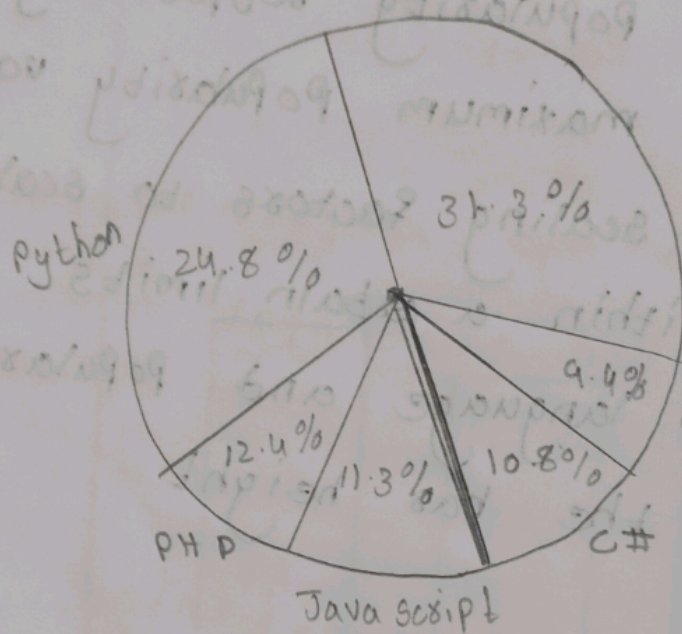 31.3.%
Python
24.8%
9.4%
12.4%
11.3%
10.8%
PHP
C#
Java script